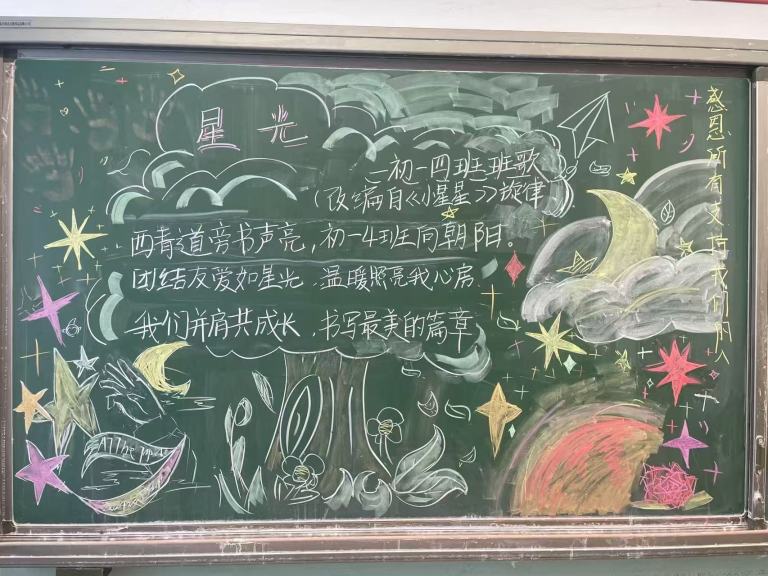 星光
初一四班班歌
(改编自《小星星》旋律)
西青道旁书声亮,初一4班向朝阳。
团结友爱如星光,温暖照亮我心房
我们并肩共成长,书写最美的篇章
感恩所有支持我们的人